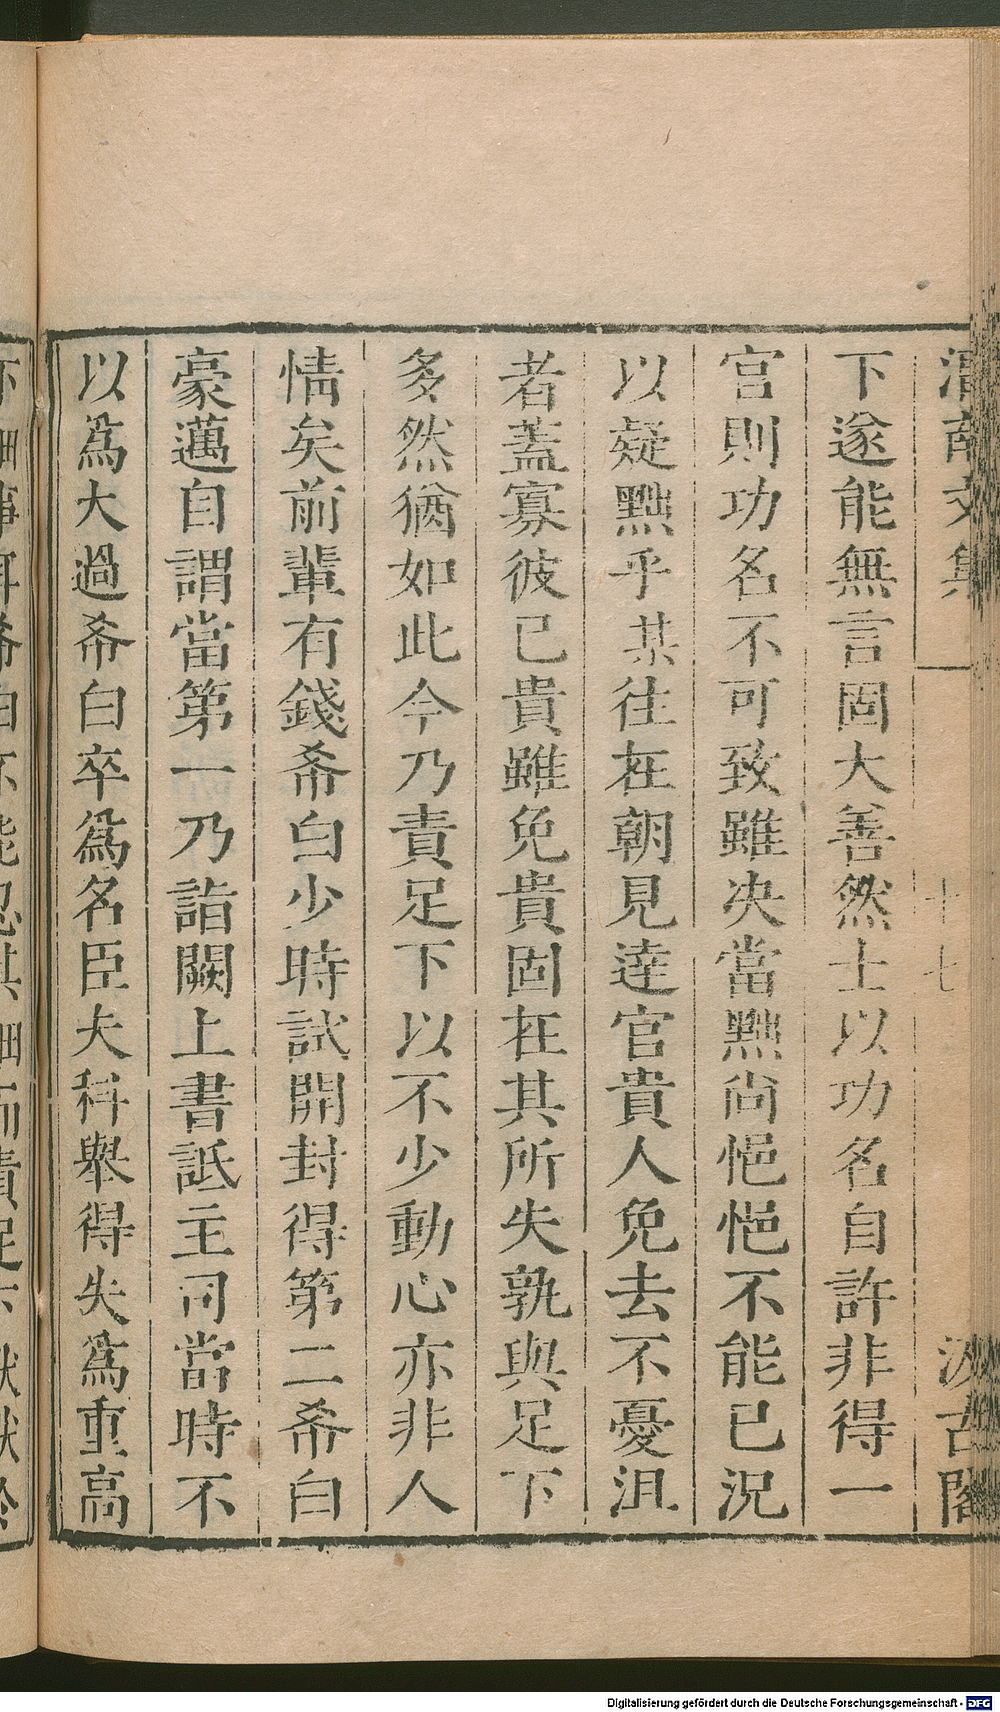 渭南文集 十七 汲古閣
下遂能無言固大善然士以功名自許非得一
官則功名不可致雖决當黜尚悒悒不能已況
以疑黜乎某往在朝見達官貴人免去不憂沮
者蓋寡彼已貴雖免貴固在其所失孰與足下
多然猶如此今乃責足下以不少動心亦非人
情矣前輩有錢希白少時試開封得第二希白
豪邁自謂當第一乃詣闕上書詆主司當時不
以爲大過希白卒爲名臣夫科舉得失爲重高
Digitalisierung gefördert durch die Deutsche Forschungsgemeinschaft - DFG